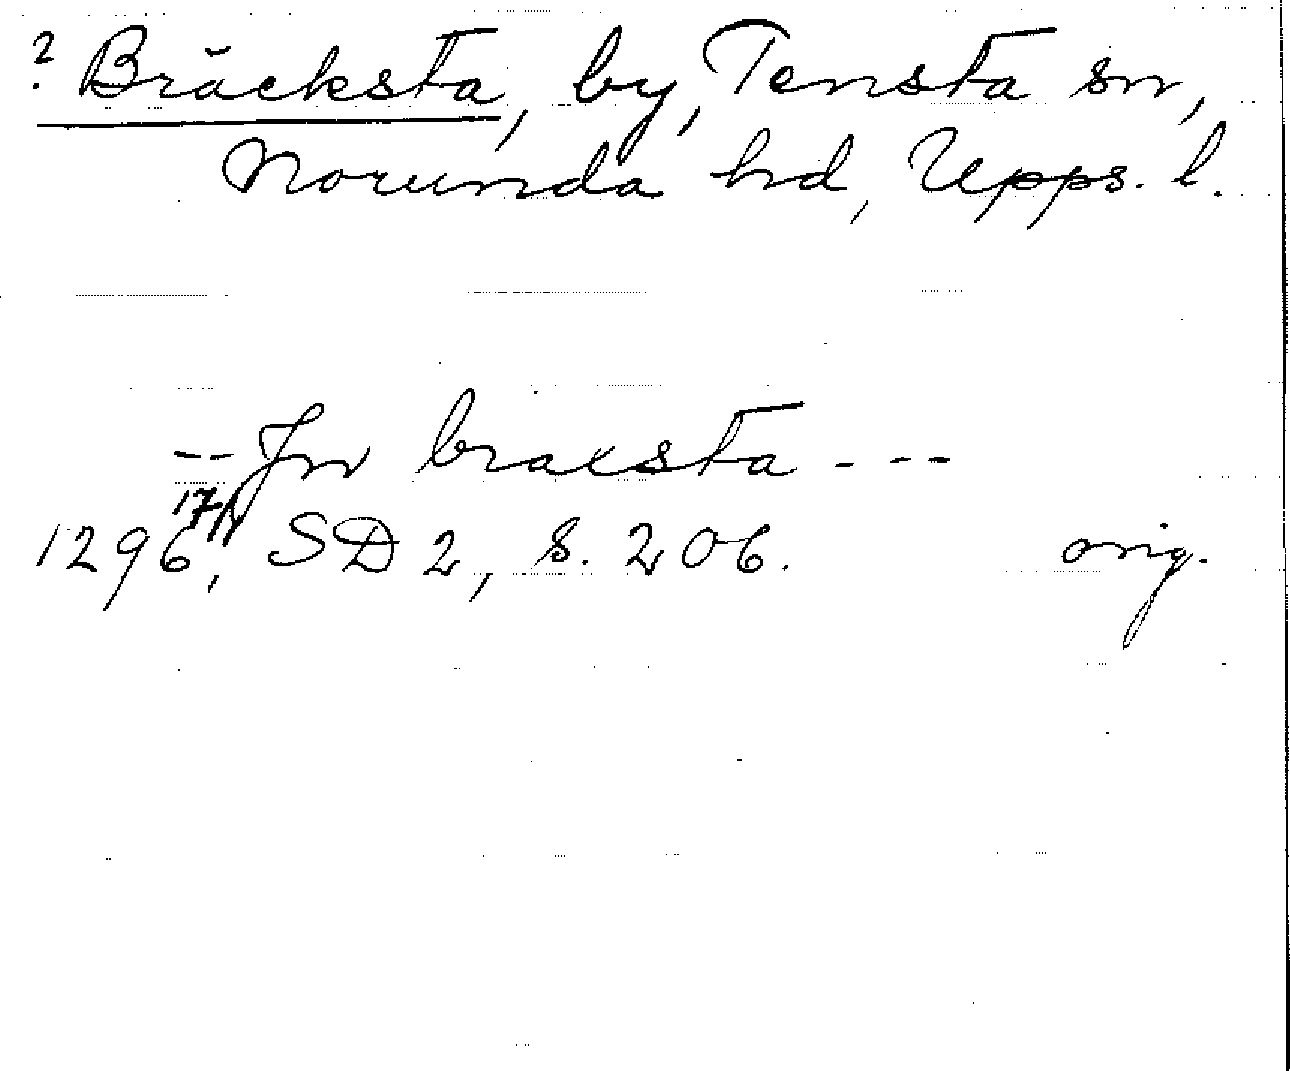 ? Bräcksta, by, Tensta sn,
Norunda hd, Upps. l.
-- Jn bracsta - --
17/1
1296, SD 2, s. 206. orig.